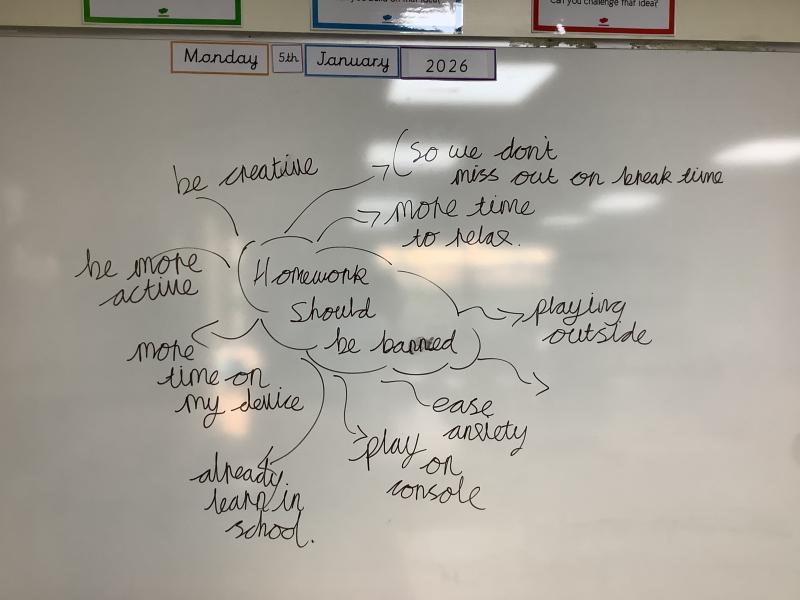 Can you challenge that idea?
Monday 5th January 2026
be creative
(so we don't
miss out on break time
more time
to relax.
be more
active
Homework
should
be banned
playing
outside
more
time on
my device
ease
anxiety
play
on
console
already
learn in
school.